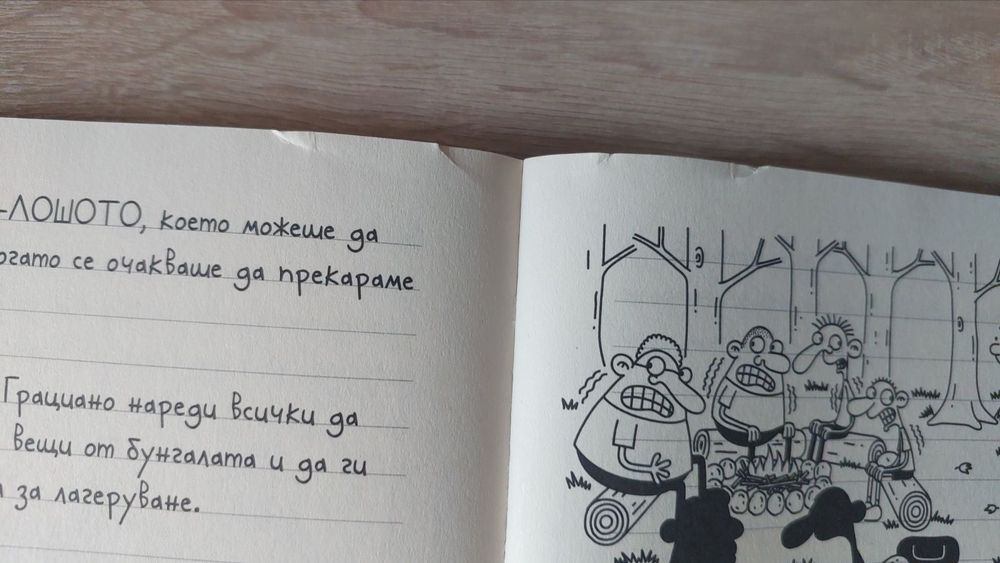 -ЛОШОТО, което можеше да
огато се очакваше да прекараме
Грациано нареди всички да
вещи от бунгалата и да ги
за лагеруване.